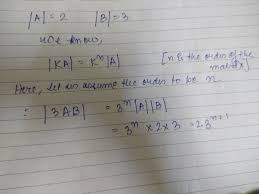 |A| = 2 |B| = 3
We know,
|KA| = Kⁿ|A| [n is the order of the matrix]
Here, let us assume the order to be n
∴ |3AB| = 3ⁿ|A||B|
= 3ⁿ × 2 × 3 = 2·3ⁿ⁺¹